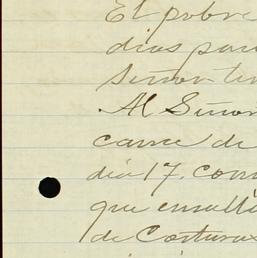 El pobre
dias par
Señor ten
Al Señor
carne de
dia 17. com
que envolt
de Costuras